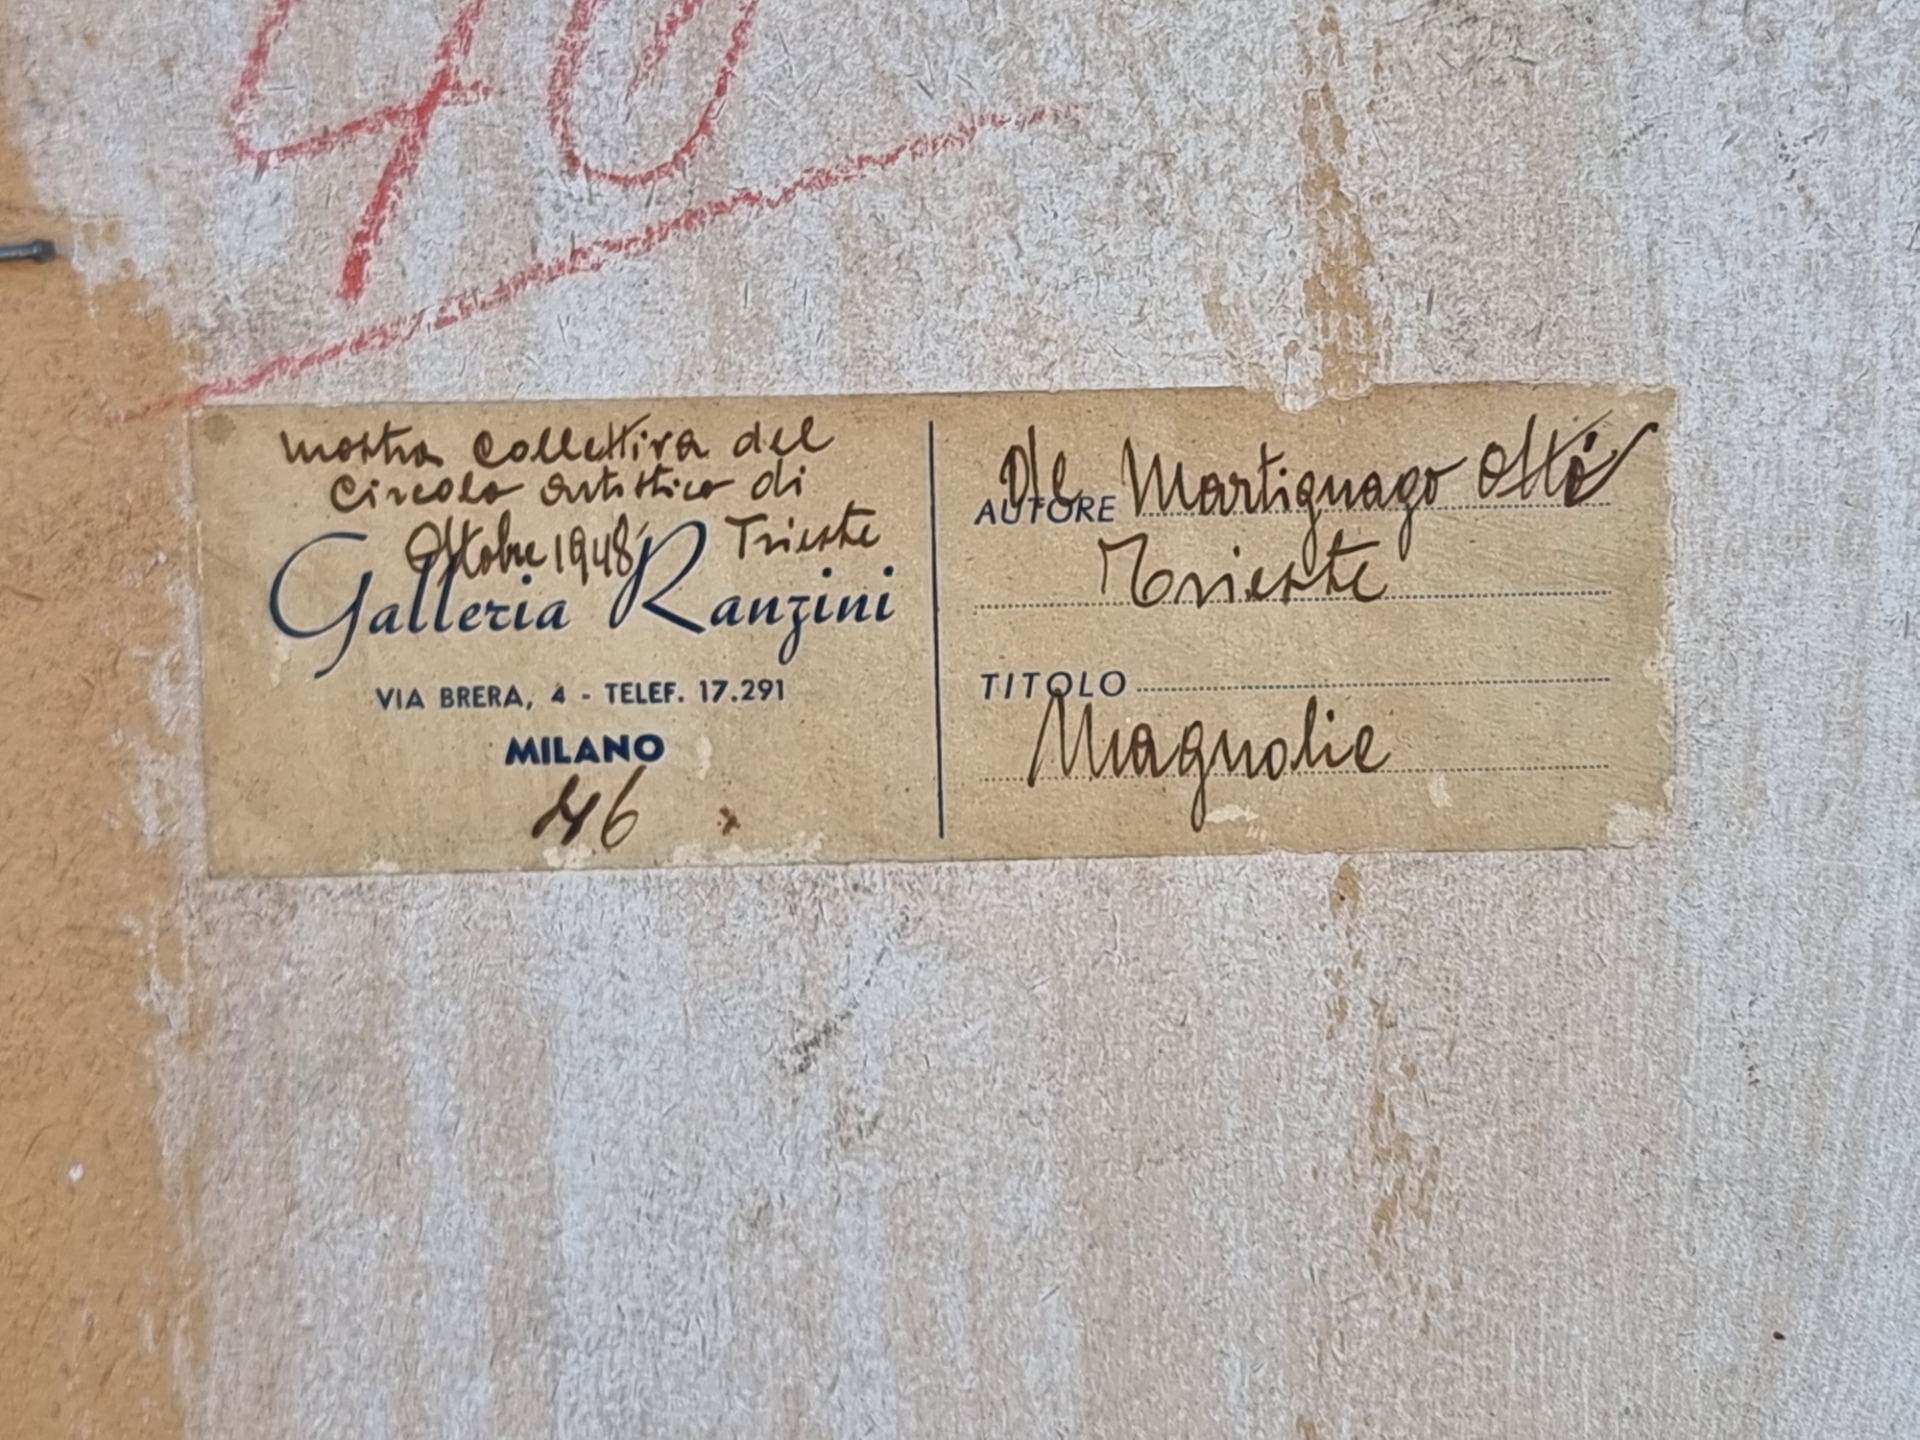 40
Mostra Collettiva del
Circolo artistico di
Ottobre 1948 Trieste
Galleria Ranzini
VIA BRERA, 4 - TELEF. 17.291
MILANO
46
AUTORE De Martignago Otto
Trieste
TITOLO
Magnolie